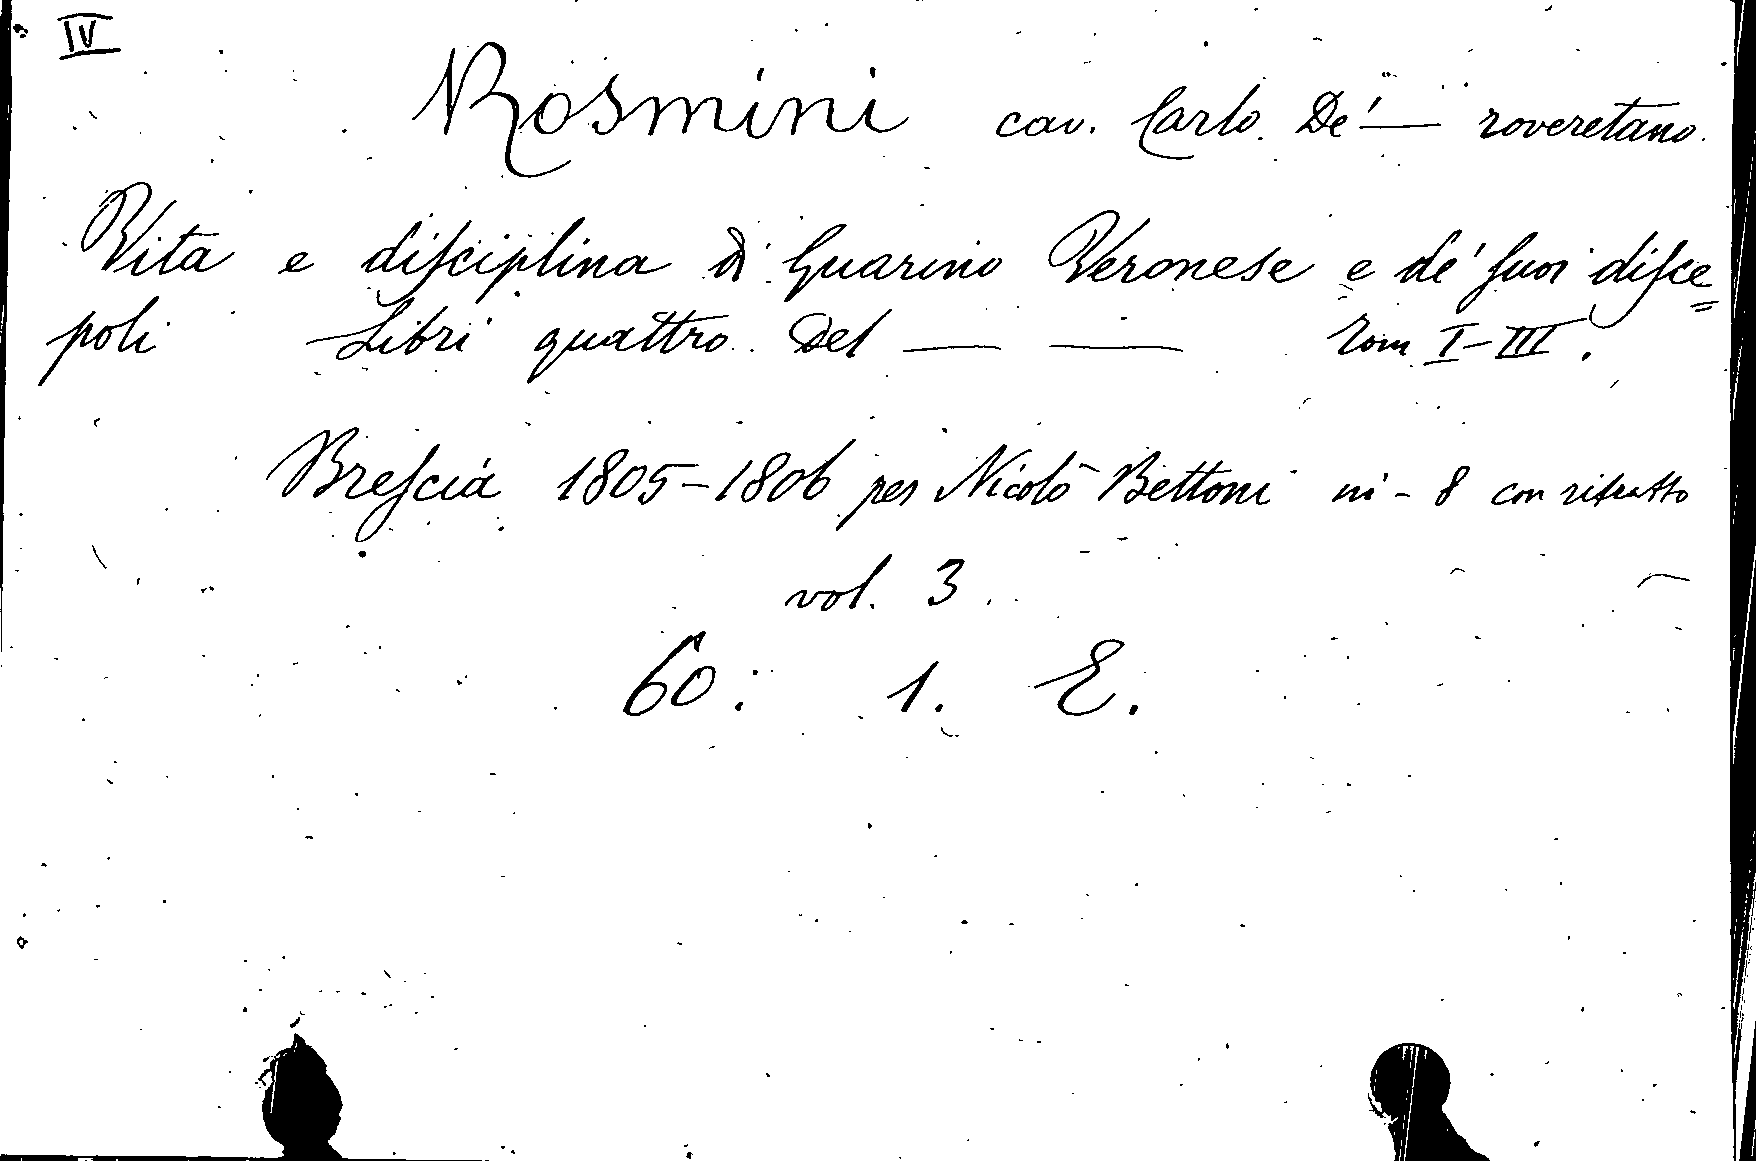 IV
Rosmini cav. Carlo. De'— roveretano.
Vita e disciplina di Guarino Veronese e de' suoi disce=
poli Libri quattro. Del — — Tom I-III.
Brescia 1805-1806 per Nicolò Bettoni in-8 con ritratto
vol. 3.
60: 1. E.